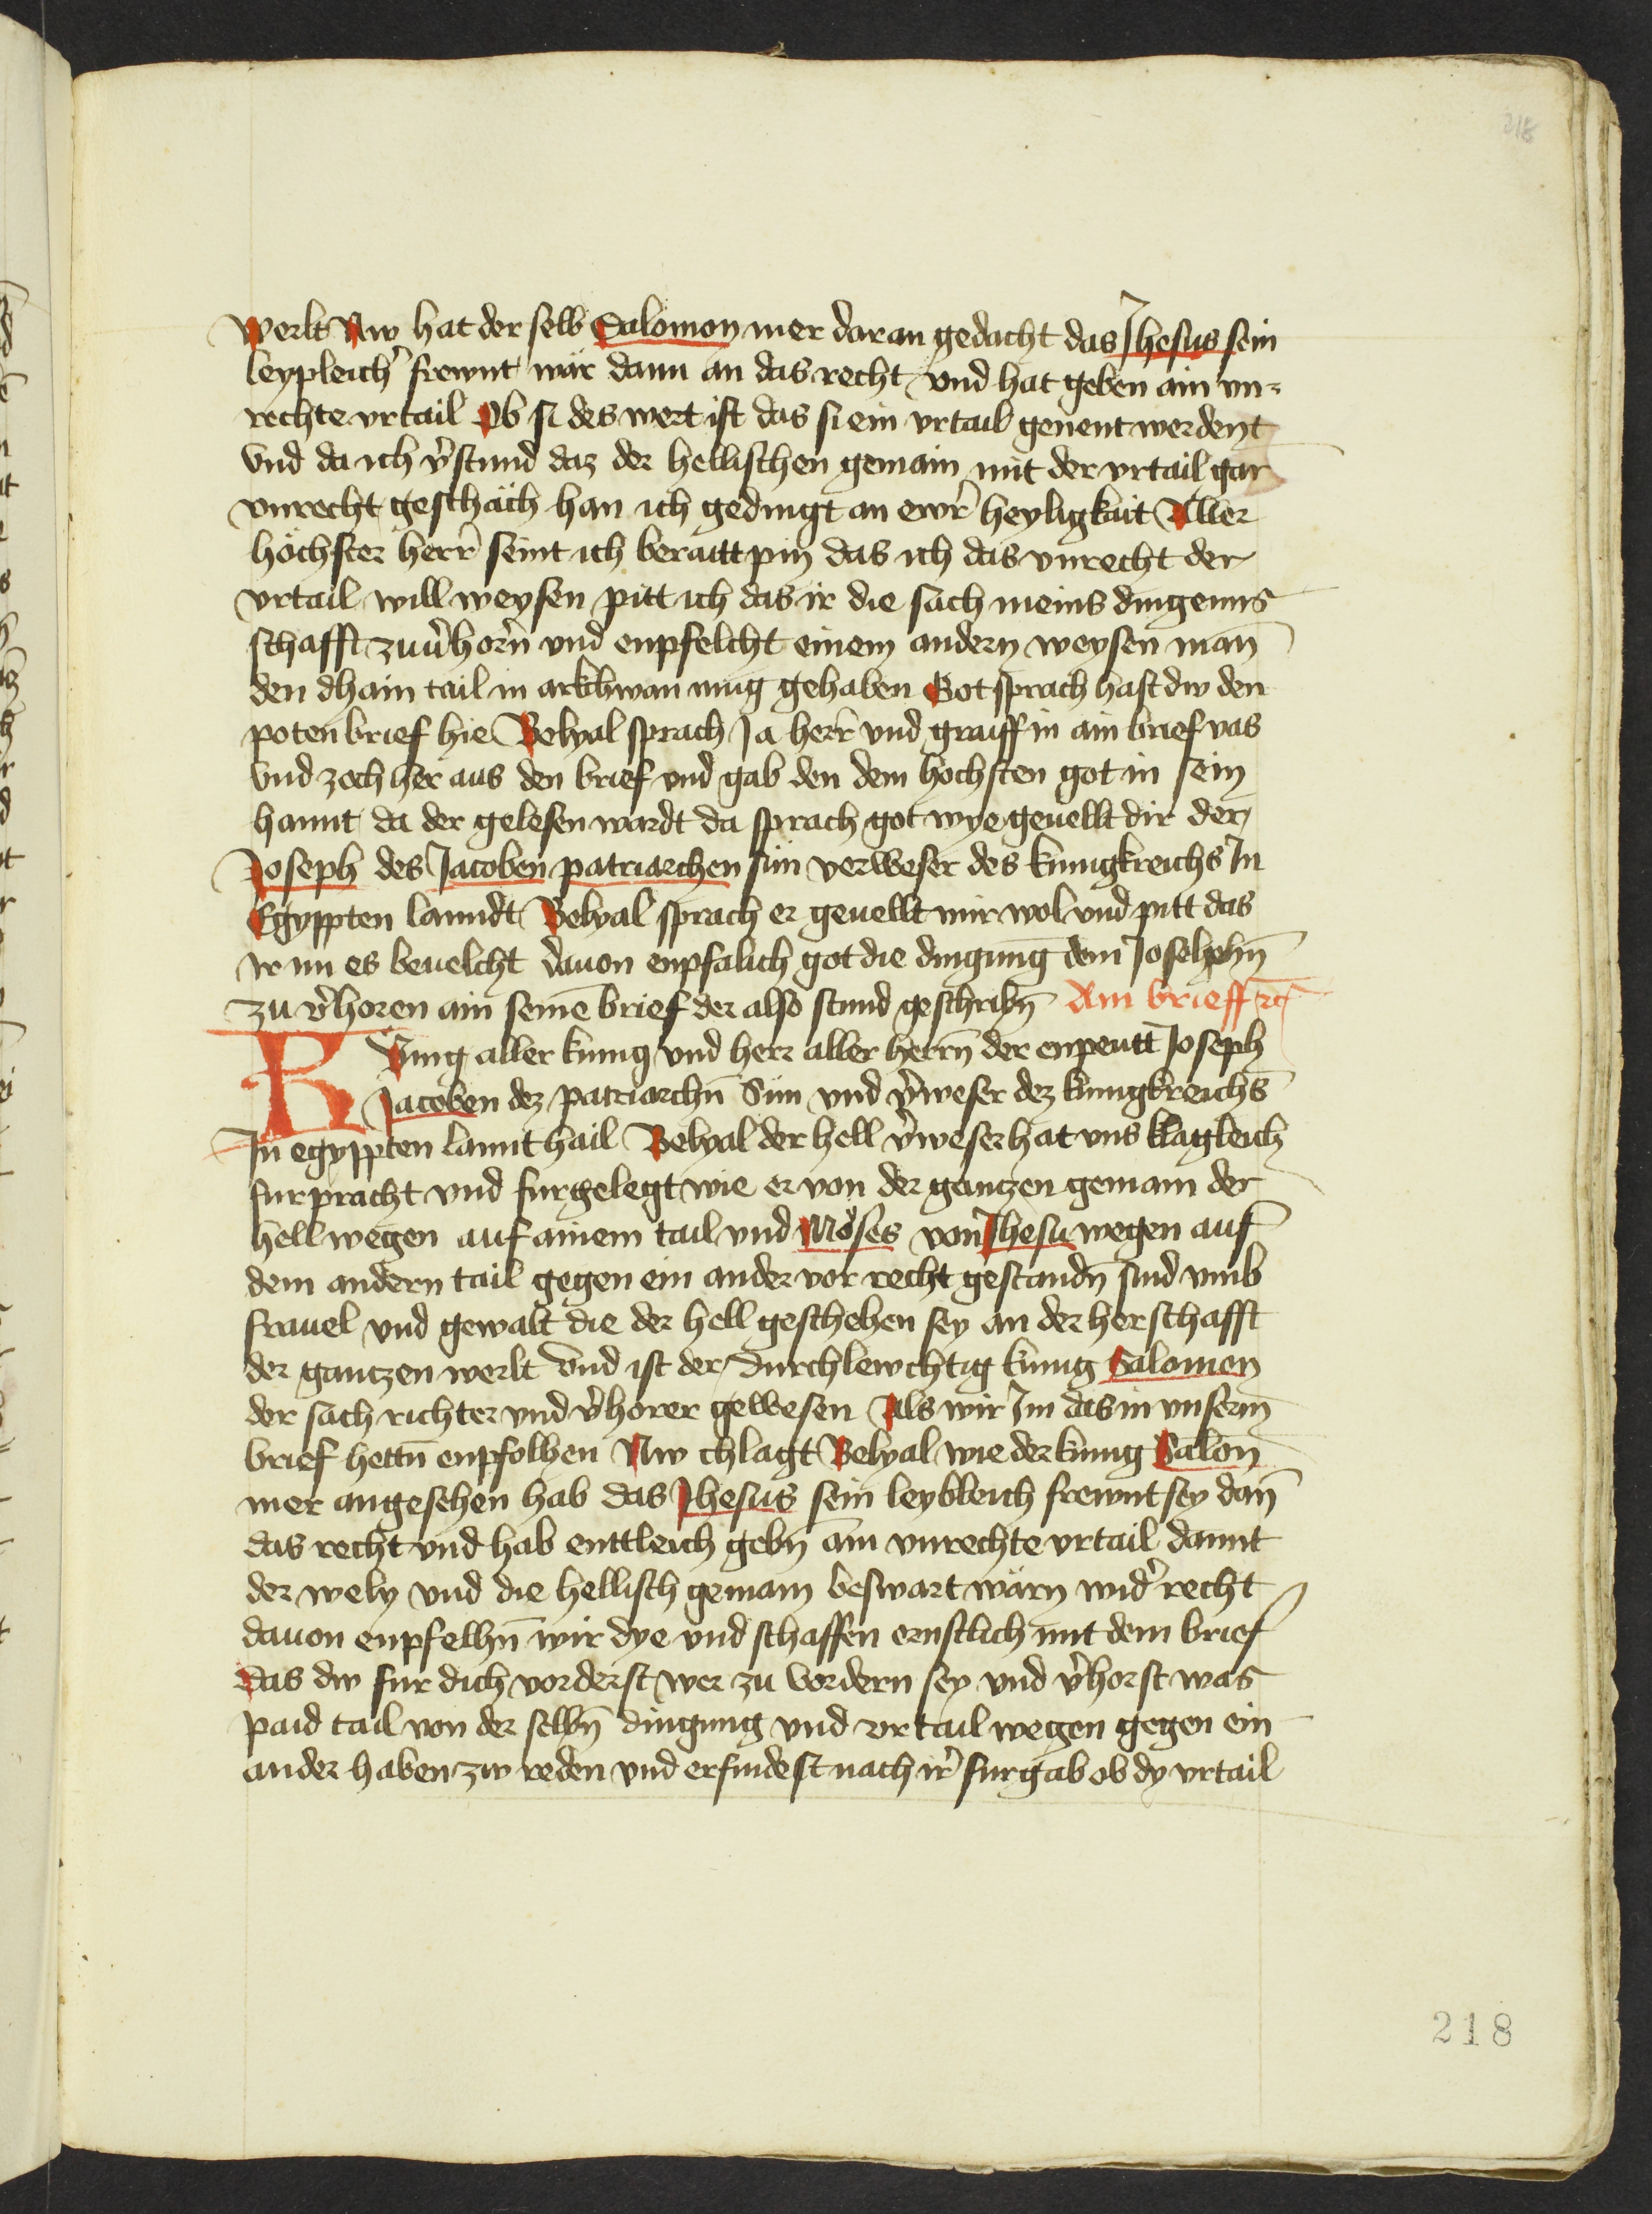 218
werlt Nw hat der selb Salomon mer daran gedacht das Jhesus sein
leypleich' frewnt wär dann an das recht und hat geben ain vn-
rechte vrtail Ob si des wert ist das si ein vrtail genent werdent
Vnd da ich v'stund daz der hellischen gemain mit der vrtail gar
vnrecht geschäch han ich gedingt an ewr' heyligkait Aller
höchster herr' seint ich beraitt pin das ich das vnrecht der
vrtail will weysen pitt ich das ir die sach meins dingenns
schafft zuu'horn̄ vnd enpfelcht einem andern weysen man̄
den dhain tail in arkchwan mug gehaben Got sprach hast dw den
poten brief hie Belyal sprach Ja herr vnd graiff in ain brief vas
Vnd zoch her aus den brief vnd gab den dem hochsten got in sein
hannt da der gelesen wardt da sprach got wye geuellt dir der
Joseph des Jacoben patriarchen sun verweser des kunigkreichs In
Egyppten lanndt Belyal sprach er geuellt mir wol vnd pitt das
ir im es beuelcht dauon enpfalich got die dingung dem Josephn̄
zu v'horen ain seinē brief der also stund geschribn̄ Ain brieff
Kunig aller kunig vnd herr aller herrn̄ der enpeutt Joseph
Jacoben dez patriarchn̄ Sun vnd v'weser dez kunigkreichs
In egyppten lannt hail Belyal der hell v'weser hat vns klagleich
furpracht vnd furgelegt wie er von der gantzen gemain der
hell wegen auf ainem tail vnd Moses von Jhesu wegen auf
dem andern tail gegen ein ander vor recht gestandn̄ sind vmb
frauel vnd gewalt die der hell geschehen sey an der herschafft
der gantzen werlt Vnd ist der durchlewchtig kunig Salomon
der sach richter vnd v'horer gewesen Als wir Im das in vnserm
brief hettn̄ enpfolhen Nw chlagt Belyal wie der kunig Salon̄
mer angesehen hab das Jhesus sein leybleich frewnt sey dan̄
das recht vnd hab enttleich gebn̄ ain vnrechte vrtail damit
der wely vnd die hellisch gemain beswart wärn wid' recht
dauon enpfelhn̄ wir dye vnd schaffen ernstlich mit dem brief
Das dw fur dich vorderst wer zu vordern sey vnd v'horst was
paid tail von der selbn̄ dingung vnd vrtail wegen gegen ein
ander haben zw reden vnd erfindest nach ir' furgab ob dy vrtail
218